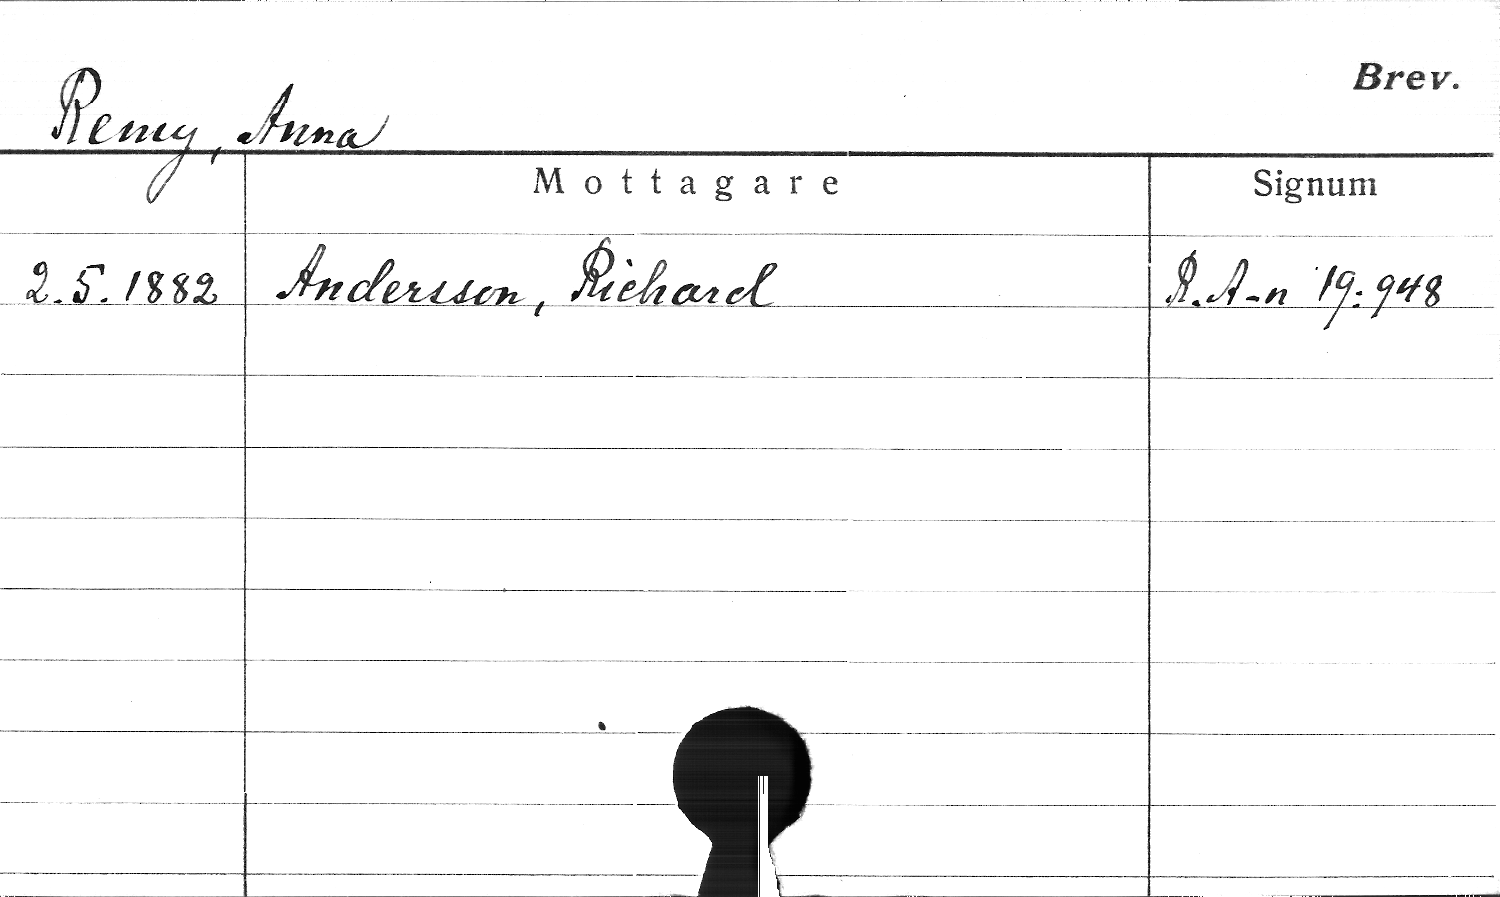 Brev.
Remy, Anna
Mottagare Signum
2.5.1882 Andersson, Richard R. A-n 19:948